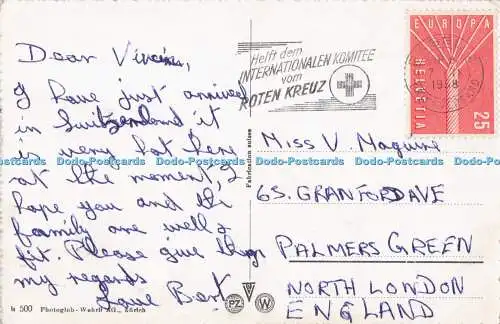 Dear Vincim,
I have just arrived
in Switzerland it
is very hot here
at the moment, I
hope you and the
family are well &
fit. Please give them
my regards
Love Bert
Helft dem
INTERNATIONALEN KOMITEE
vom
ROTEN KREUZ
EUROPA
HELVETIA
25
1958
Miss V. Maguire
65. GRANFORD AVE
PALMERS GREEN
NORTH LONDON
ENGLAND
Fabrication suisse
Dodo-Postcards Dodo-Postcards Dodo-Postcards Dodo-Postcards Dodo-Postcards Dodo-Postcards
500 Photoglob-Wehrli AG., Zürich
PZ W